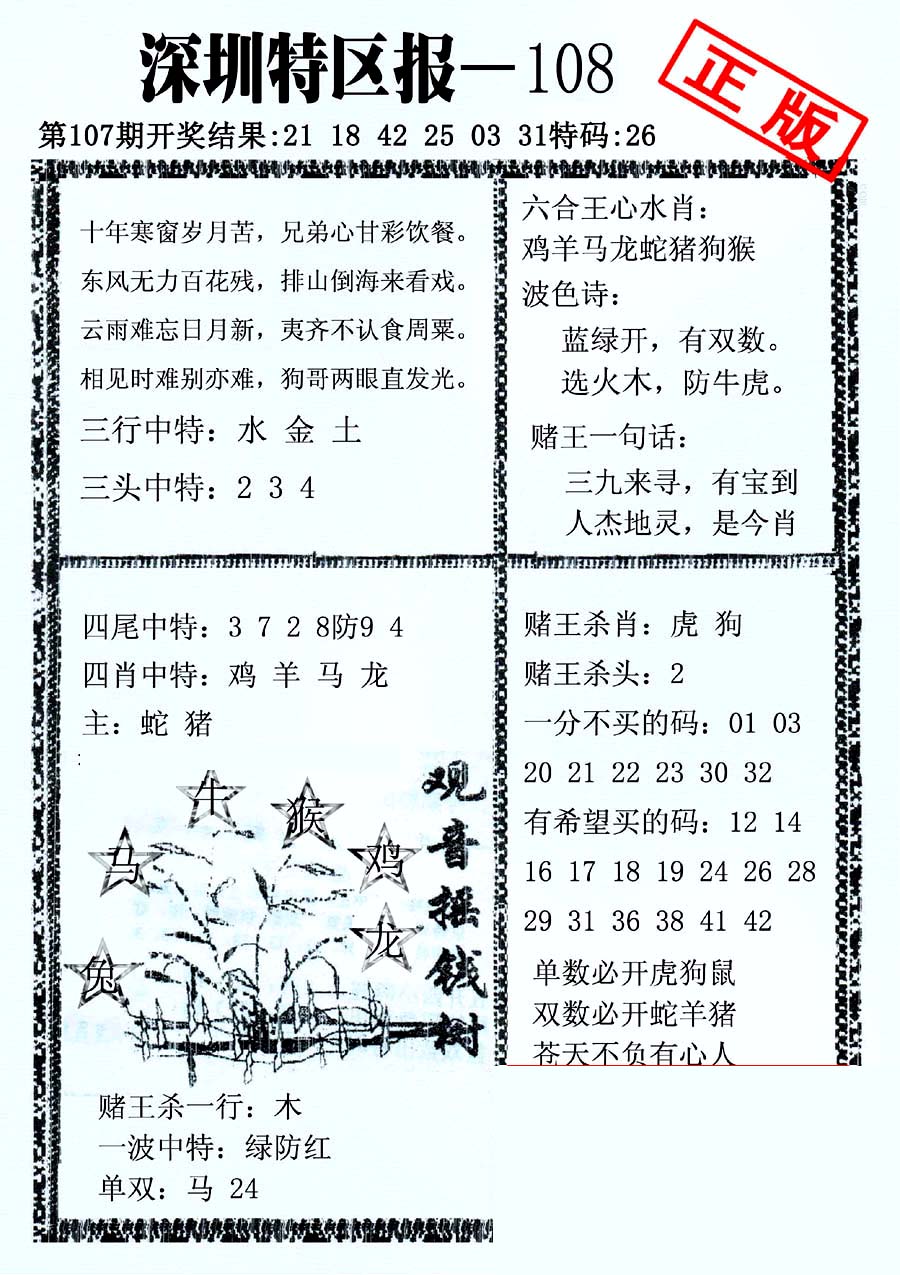 深圳特区报—108
正版
第107期开奖结果:21 18 42 25 03 31特码:26
十年寒窗岁月苦，兄弟心甘彩饮餐。
东风无力百花残，排山倒海来看戏。
云雨难忘日月新，夷齐不认食周粟。
相见时难别亦难，狗哥两眼直发光。
三行中特：水 金 土
三头中特：2 3 4
六合王心水肖：
鸡羊马龙蛇猪狗猴
波色诗：
蓝绿开，有双数。
选火木，防牛虎。
赌王一句话：
三九来寻，有宝到
人杰地灵，是今肖
四尾中特：3 7 2 8防9 4
四肖中特：鸡 羊 马 龙
主：蛇 猪
:
牛
猴
马
鸡
龙
兔
观音摇钱树
赌王杀一行：木
一波中特：绿防红
单双：马 24
赌王杀肖：虎 狗
赌王杀头：2
一分不买的码：01 03
20 21 22 23 30 32
有希望买的码：12 14
16 17 18 19 24 26 28
29 31 36 38 41 42
单数必开虎狗鼠
双数必开蛇羊猪
苍天不负有心人